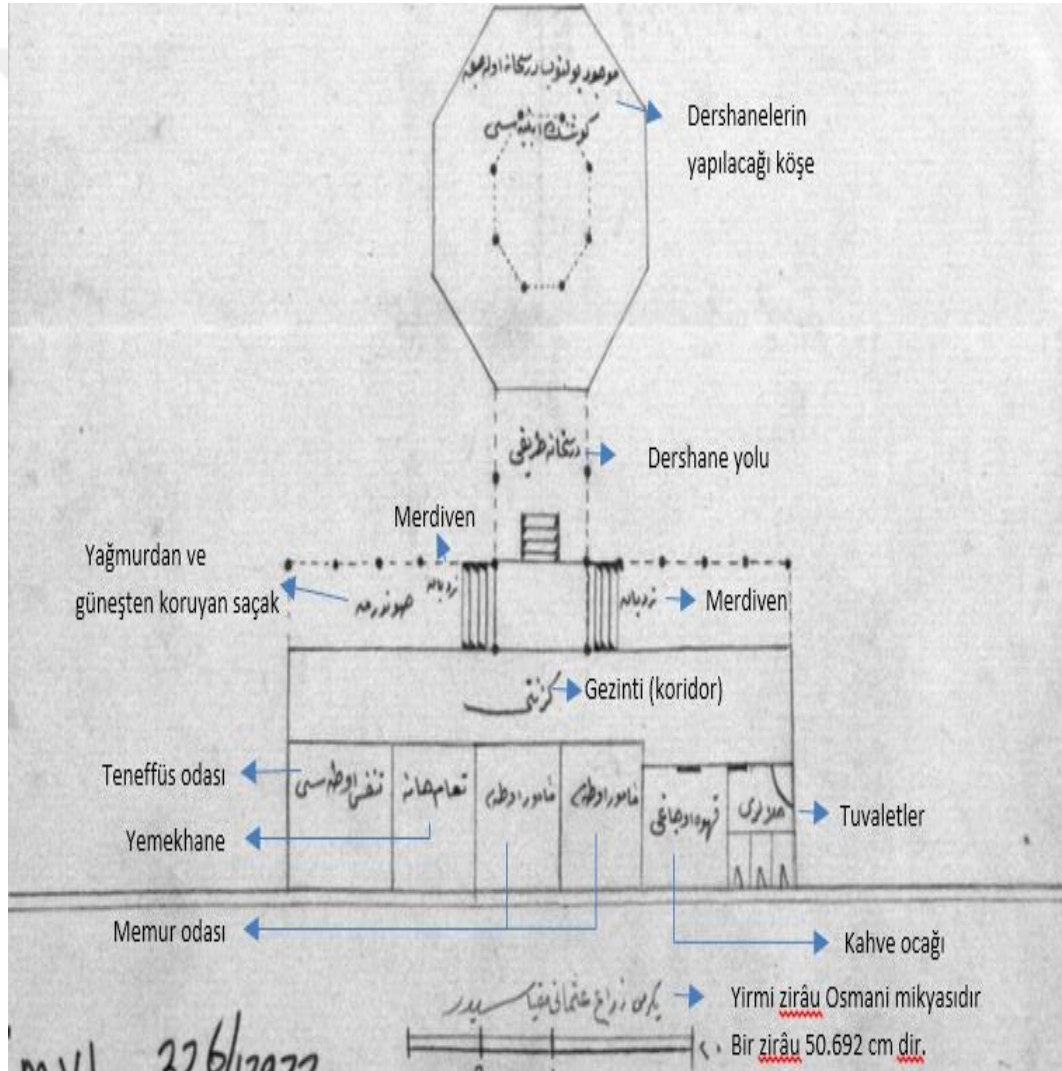 موجود بولنوب درسخانه اوله جق
Dershanelerin
yapılacağı köşe
درسخانه طريقى
Dershane yolu
Merdiven
Yağmurdan ve
güneşten koruyan saçak
نردبان
نردبان
Merdiven
كزنتى
Gezinti (koridor)
Teneffüs odası
تنفس اوطه سى
طعامخانه
مأمور اوطه سى
مأمور اوطه سى
قهوه اوجاغى
Tuvaletler
Yemekhane
Memur odası
Kahve ocağı
يكرمى ذراع عثمانى مقياسيدر
Yirmi zirâu Osmani mikyasıdır
٢٠
Bir zirâu 50.692 cm dir.